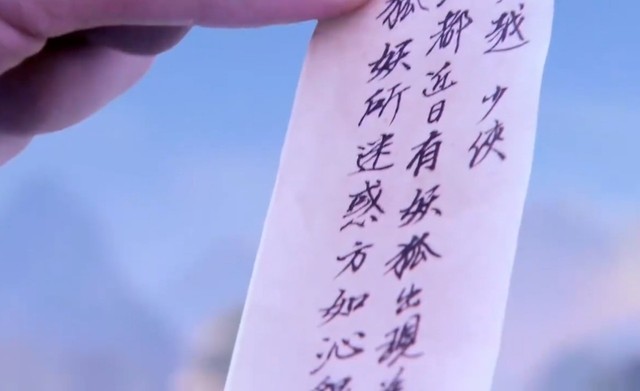 越少俠
都近日有妖狐出現
狐妖所迷惑方如沁